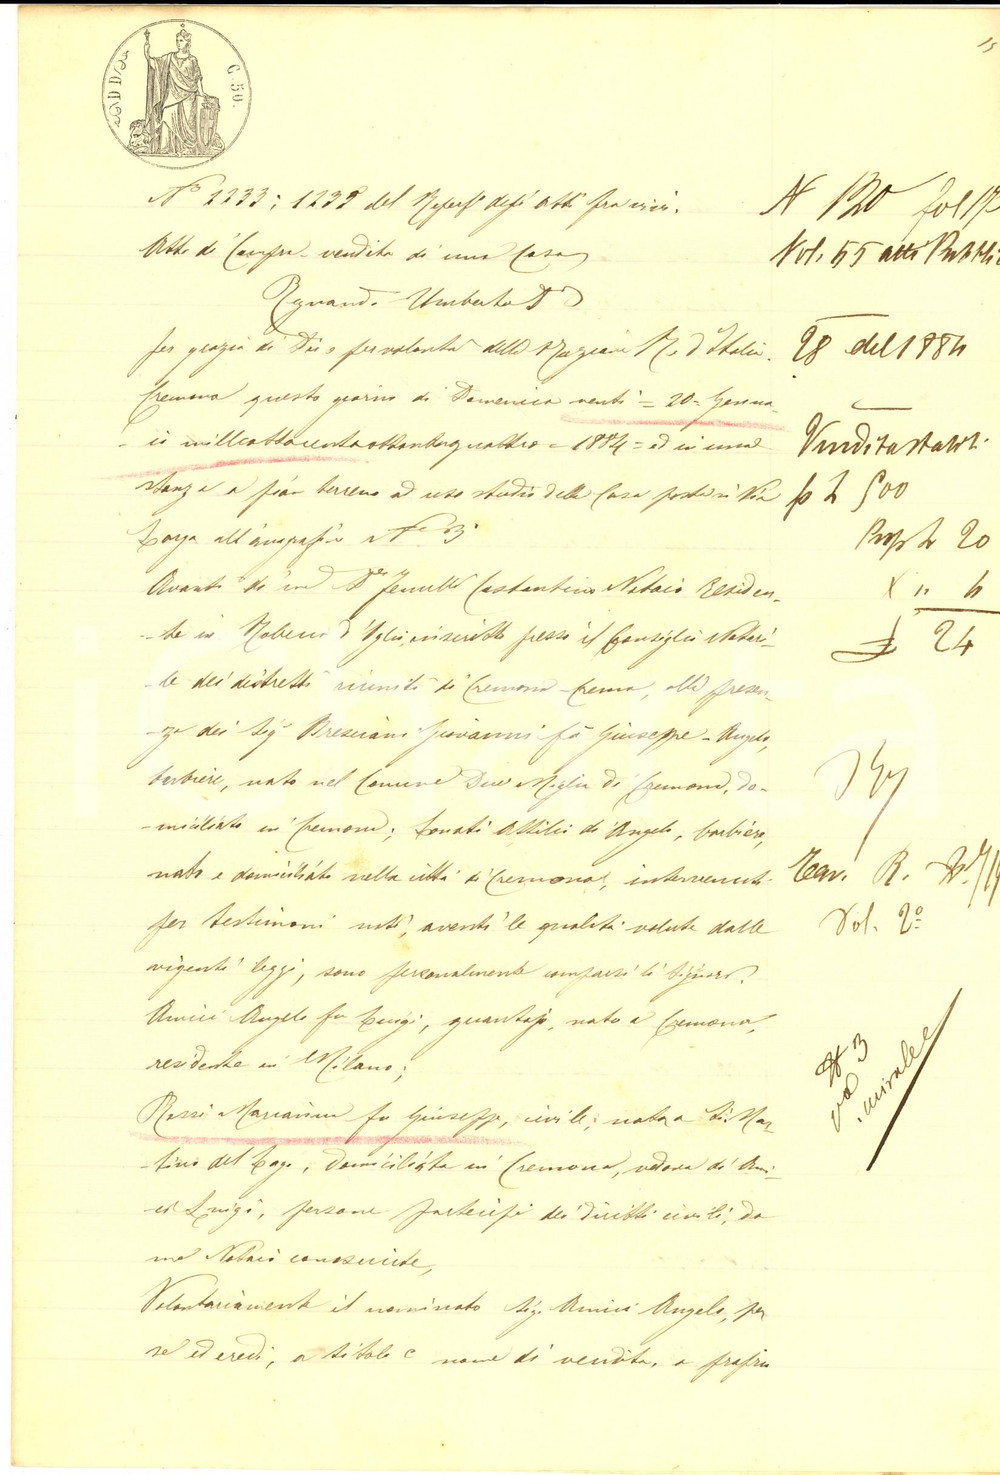 C. 50.
15
N° 1233; 1235 del Repert degli Atti fra vivi.
Atto di Compra-vendita di una Casa
Regnando Umberto I°
per grazia di Dio e per volontà della Nazione Re d'Italia.
Cremona questo giorno di Domenica venti = 20 = Genna-
-io mille ottocento ottantaquattro = 1884 = ed in una
stanza a pian terreno ad uso studio della Casa posta in Via
all'anagrafico N° 3.
Avanti di me D.r Costantino Notaio Residen-
-te in Robecco d'Oglio, inscritto presso il Consiglio Notari-
-le dei distretti riuniti di Cremona-Crema, alla presen-
-za dei Sig.i Bresciani Giovanni fu Giuseppe-Angelo,
barbiere, nato nel Comune Due Miglia di Cremona, do-
-miciliato in Cremona; Donati Attilio di Angelo, barbiere,
nato e domiciliato nella città di Cremona, intervenuti
per testimoni noti, aventi le qualità volute dalle
vigenti leggi, sono personalmente comparsi li Signori:
Amici Angelo fu Luigi, guantajo, nato a Cremona,
residente in Milano;
Rossi Marianna fu Giuseppe, civile, nata a S. Mar-
-tino del Lago, domiciliata in Cremona, vedova di Ami-
-ci Luigi, persone partecipi dei diritti civili, da
me Notaio conosciute,
Volontariamente il nominato Sig. Amici Angelo, per
sè ed eredi, a titolo e nome di vendita, a proprio
N 120 fol 17
Vol. 55 atti Pubbli
28 del 1884
Vendita stabili
p L 500
Prop L 20
X " 4
£ 24
Vol. 2°
N 3